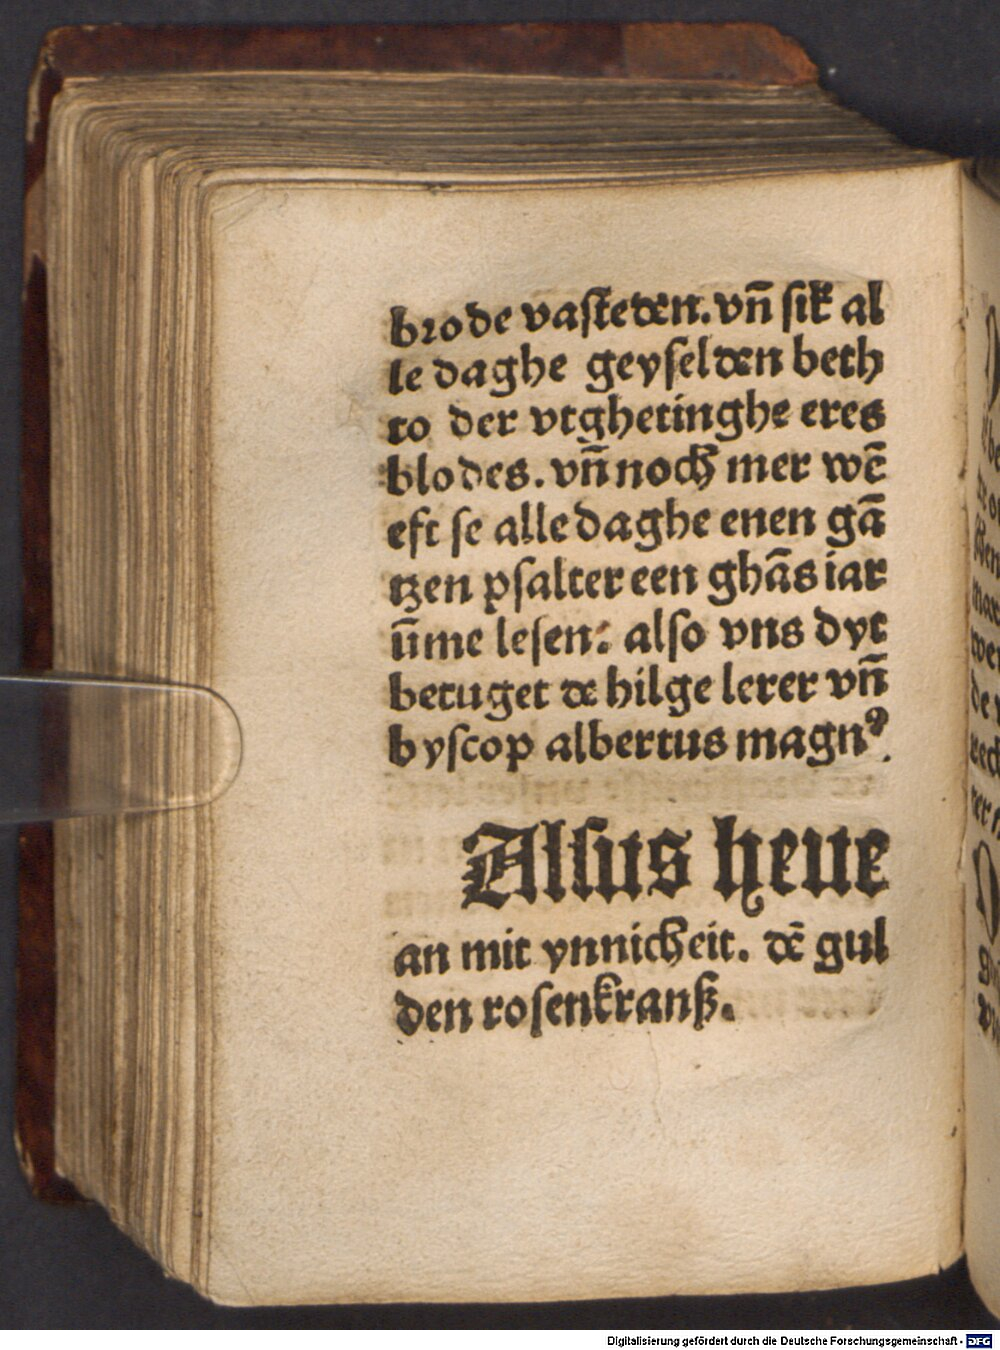 brode vasteden. vn̄ sik al
le daghe geyselden beth
to der vtghetinghe eres
blodes. vn̄ noch mer wē
eft se alle daghe enen gā
tzen psalter een ghās iar
ūme lesen: also vns dyt
betuget de hilge lerer vn̄
byscop albertus magnꝰ.
Alsus heue
an mit ynnicheit. dē gul
den rosenkranß.
Digitalisierung gefördert durch die Deutsche Forschungsgemeinschaft - DFG